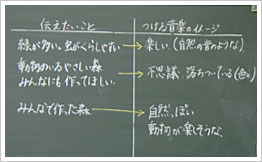 伝えたいこと つける音楽のイメージ
緑が多い。虫がくらしやすい 楽しい（自然の音のような）
動物のいるやさしい森
みんなにも作ってほしい。 不思議 落ちついている（色々）
みんなで作った森 自然っぽい
動物が楽しそうな